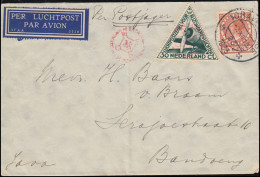 PER LUCHTPOST
PAR AVION
Per Postjager
30 NEDERLAND CT.
Mevr. H. Baars
v Braam
Serajoestraat 10
Bandoeng
Java